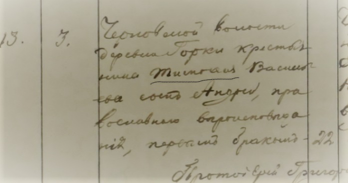 13. 3. Черновской волости
деревни Горки кресть-
янина Тимофея Василь-
ева сынъ Андрей, пра-
вославнаго вѣроисповѣда-
ній, первымъ бракомъ 22
Протоіерей Григор